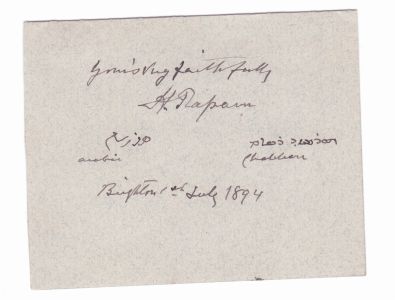 Yours very faithfully
H. Rassam
arabic Chaldean
Brighton 1st July 1894